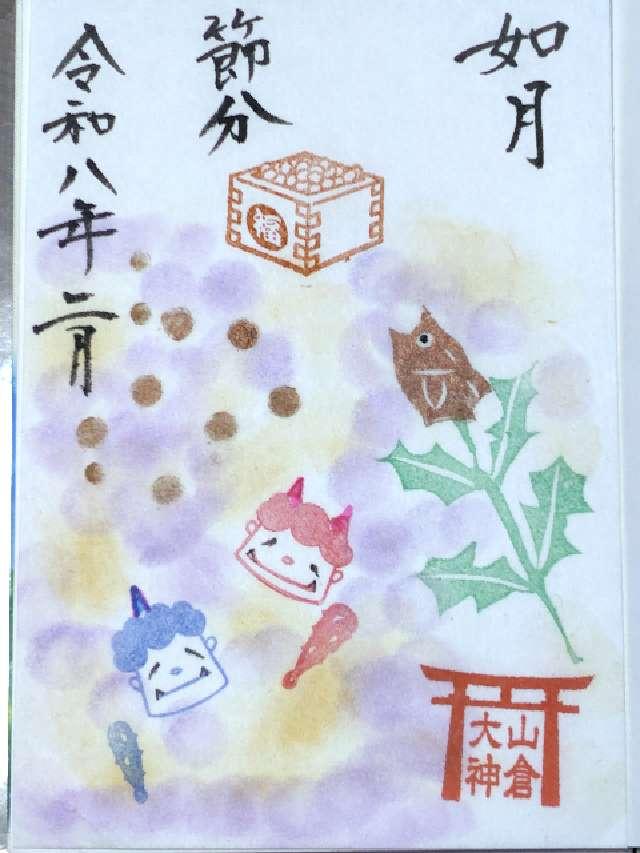 如月
節分
福
令和八年二月
山倉
大神